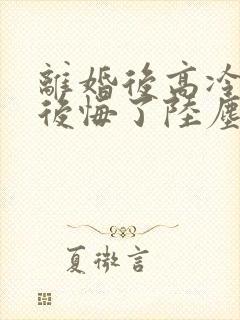 離婚後高冷
後悔了陸塵
夏微言